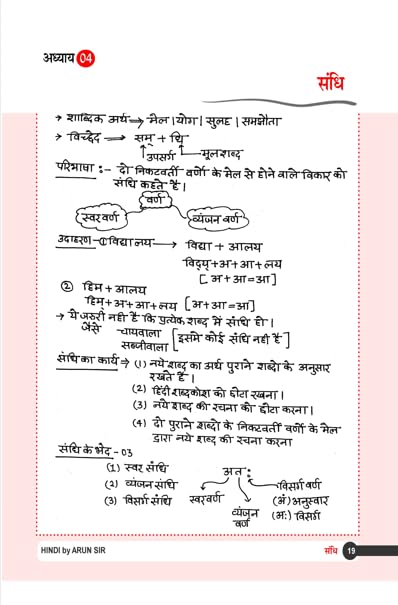 अध्याय 04
संधि
→ शाब्दिक अर्थ ⇒ मेल । योग । सुलह । समझौता
→ विच्छेद ⇒ सम् + धि
उपसर्ग मूलशब्द
परिभाषा :- दो निकटवर्ती वर्णों के मेल से होने वाले विकार को
संधि कहते है।
वर्ण
स्वर वर्ण व्यंजन वर्ण
उदाहरण - ① विद्यालय → विद्या + आलय
विद्य् + अ + आ + लय
[अ + आ = आ]
② हिम + आलय
हिम् + अ + आ + लय [अ + आ = आ]
→ ये जरुरी नही है कि प्रत्येक शब्द में संधि हो।
जैसे चायवाला [इसमे कोई संधि नही है]
सब्जीवाला
संधि का कार्य → (1) नये शब्द का अर्थ पुराने शब्दो के अनुसार
रखते है।
(2) हिंदी शब्दकोश को छोटा रखना।
(3) नये शब्द की रचना को छोटा करना।
(4) दो पुराने शब्दो के निकटवर्ती वर्णों के मेल
द्वारा नये शब्द की रचना करना
संधि के भेद - 03
(1) स्वर संधि अतः
(2) व्यंजन संधि विसर्ग वर्ण
(3) विसर्ग संधि स्वर वर्ण (अं) अनुस्वार
व्यंजन वर्ण (अः) विसर्ग
HINDI by ARUN SIR संधि 19